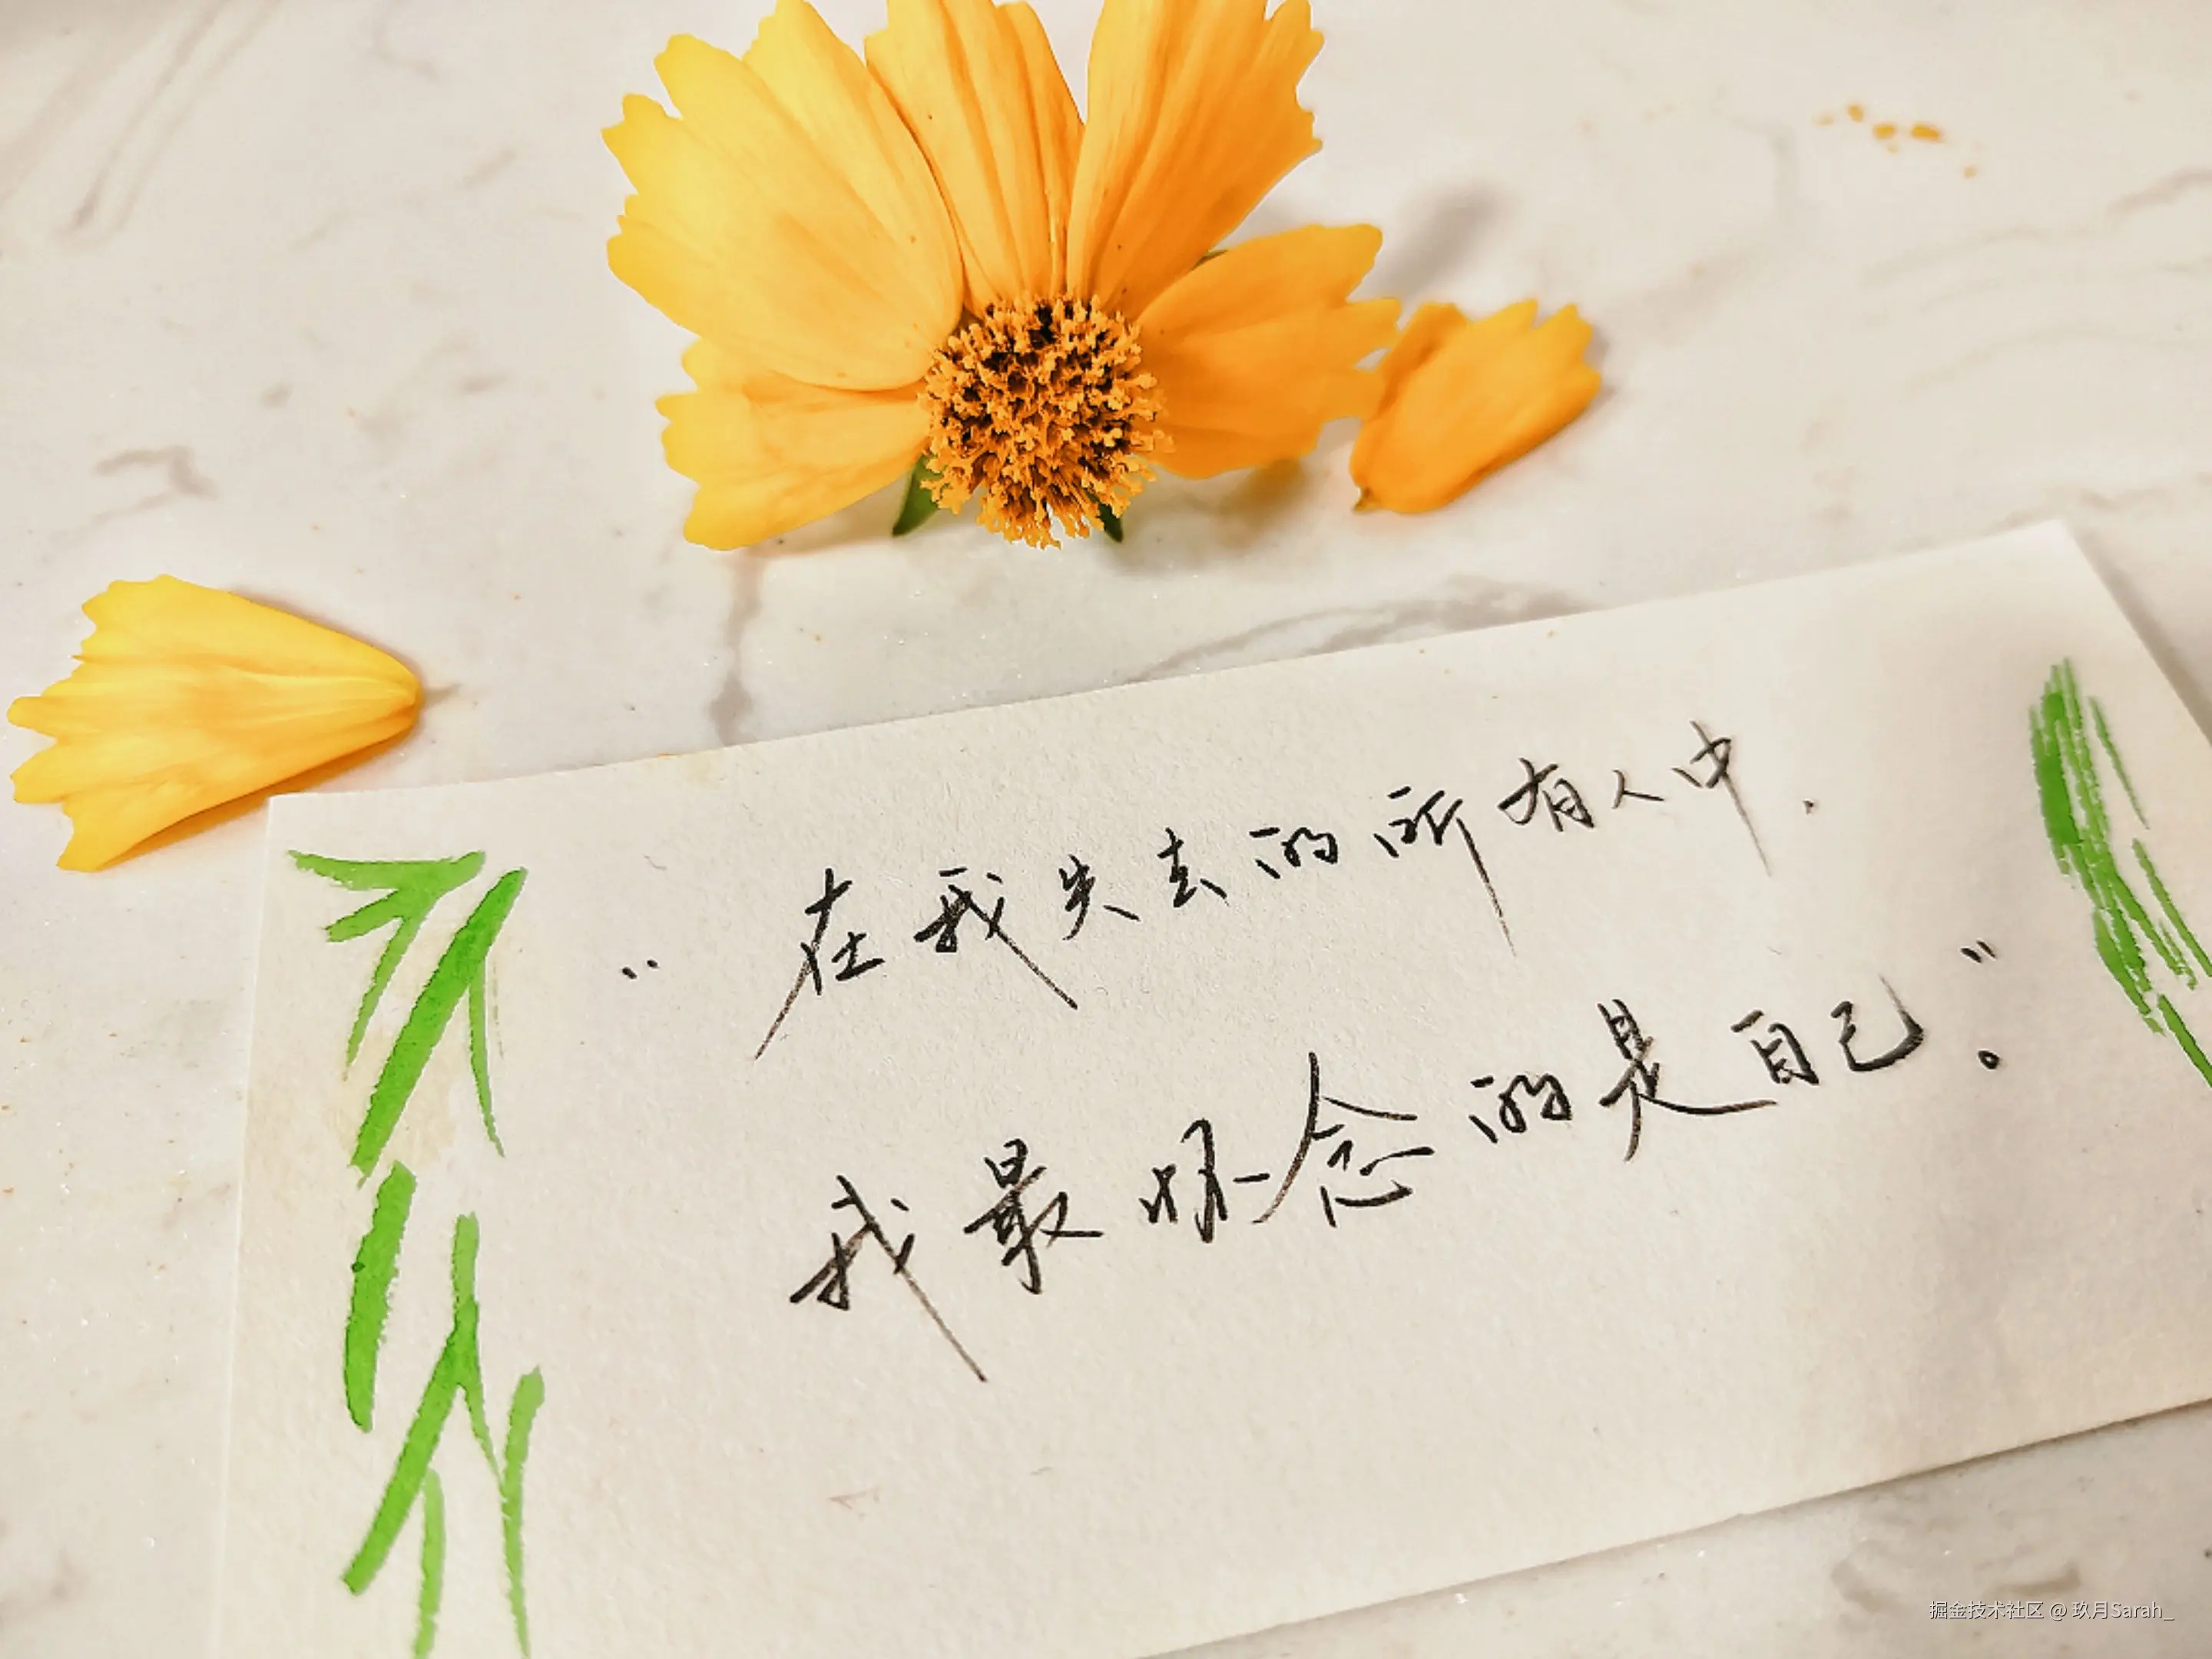 “在我失去的所有人中，
我最怀念的是自己。”
掘金技术社区 @ 玖月Sarah_